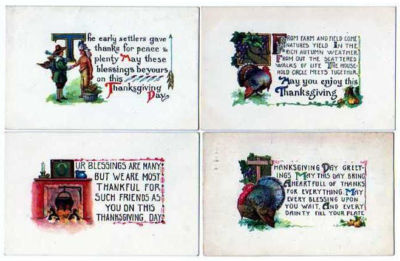 The early settlers gave
thanks for peace &
plenty May these
blessings be yours
on this
Thanksgiving
Day.
FROM FARM AND FIELD COME
NATURES YIELD IN THE
RICH AUTUMN WEATHER.
FROM OUT THE SCATTERED
WALKS OF LIFE THE HOUSE-
HOLD CIRCLE MEETS TOGETHER.
May you enjoy this
Thanksgiving.
OUR BLESSINGS ARE MANY
BUT WE ARE MOST
THANKFUL FOR
SUCH FRIENDS AS
YOU ON THIS
THANKSGIVING DAY
THANKSGIVING DAY GREET-
INGS MAY THIS DAY BRING
A HEART FULL OF THANKS
FOR EVERYTHING MAY
EVERY BLESSING UPON
YOU WAIT, AND EVERY
DAINTY FILL YOUR PLATE